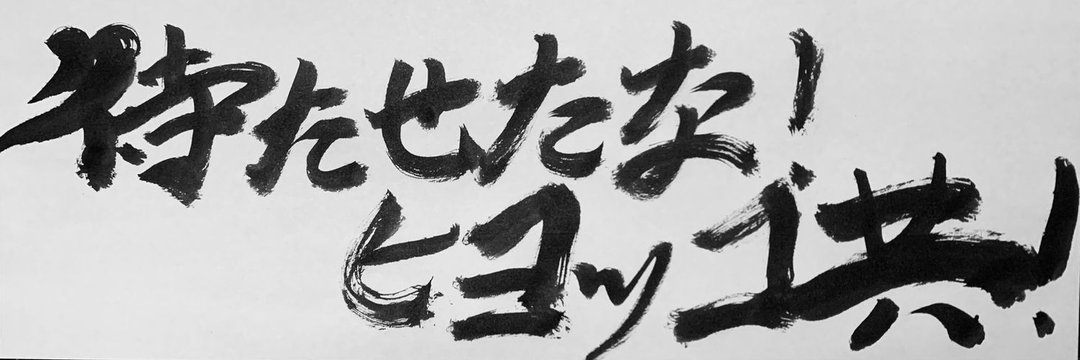 待たせたな!
ヒヨッコ共!